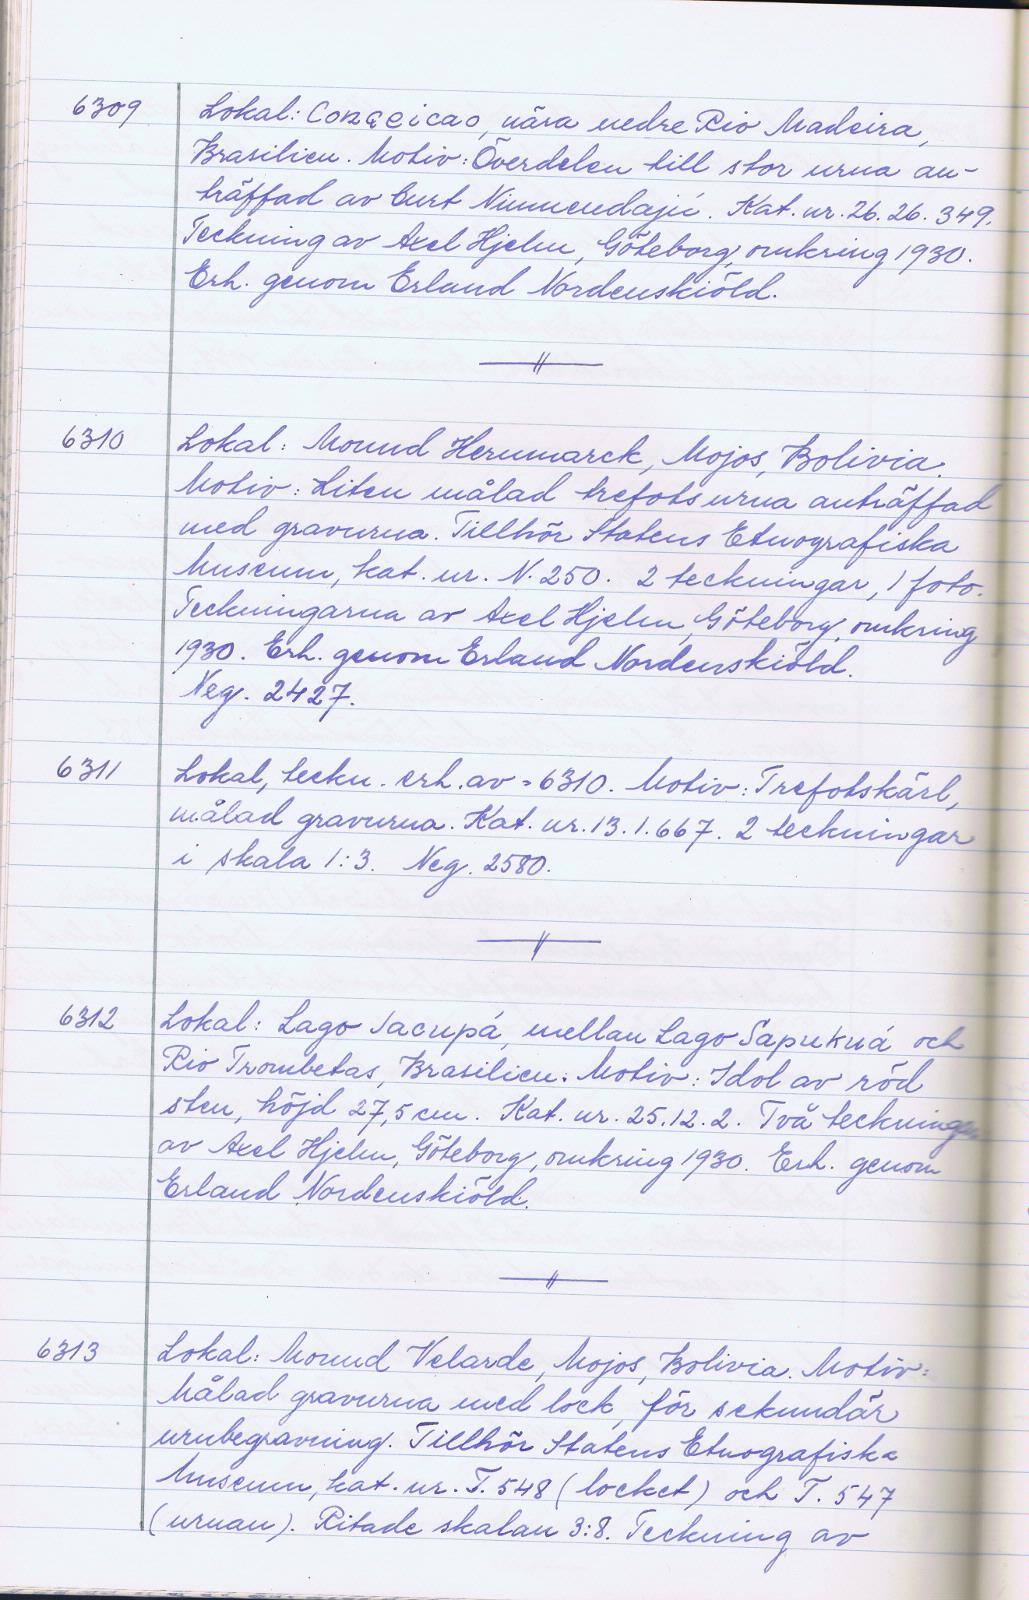 6309 Lokal: Conçeicao, nära nedre Rio Madeira,
Brasilien. Motiv: Överdelen till stor urna an-
träffad av Curt Nimuendajú. Kat. nr. 26. 26. 349.
Teckning av Axel Hjelm, Göteborg, omkring 1930.
Erh. genom Erland Nordenskiöld.
6310 Lokal: Mound Hernmarck, Mojos, Bolivia.
Motiv: Liten målad trefotsurna anträffad
med gravurna. Tillhör Statens Etnografiska
Museum, kat. nr. N. 250. 2 teckningar, 1 foto.
Teckningarna av Axel Hjelm, Göteborg, omkring
1930. Erh. genom Erland Nordenskiöld.
Neg. 2427.
6311 Lokal, teckn. erh. av = 6310. Motiv: Trefotskärl,
målad gravurna. Kat. nr. 13. 1. 667. 2 teckningar
i skala 1:3. Neg. 2580.
6312 Lokal: Lago Jacupá, mellan Lago Sapukuá och
Rio Trombetas, Brasilien. Motiv: Idol av röd
sten, höjd 27,5 cm. Kat. nr. 25. 12. 2. Två teckningar
av Axel Hjelm, Göteborg, omkring 1930. Erh. genom
Erland Nordenskiöld.
6313 Lokal: Mound Velarde, Mojos, Bolivia. Motiv:
Målad gravurna med lock, för sekundär
urnbegravning. Tillhör Statens Etnografiska
Museum, kat. nr. T. 548 (locket) och T. 547
(urnan). Ritade skalan 3:8. Teckning av